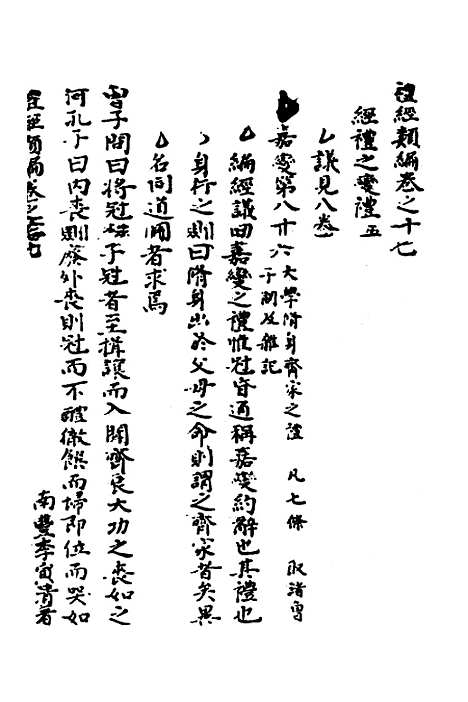 禮經類編卷之十七
經禮之變禮五
議見八卷
嘉變第八十六 大學脩身齊家之禮 凡七條 取諸曾
子問及雜記
編經議曰嘉變之禮惟冠昏通稱嘉變約辭也其禮也
身行之則曰脩身出於父母之命則謂之齊家者矣異
名同道閱者求焉
曾子問曰將冠子冠者至揖讓而入聞齊衰大功之喪如之
何孔子曰內喪則廢外喪則冠而不醴徹饌而埽即位而哭如
南豐李寅清著